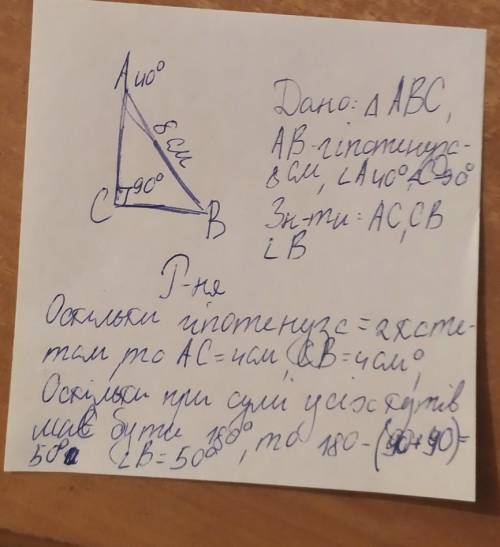 A 40°
8 см
C 90°
B
Дано: △ ABC,
AB-гіпотенуза-
8 см, ∠A 40°, ∠C 90°
Зн-ти: AC, CB
∠B
Р-ня
Оскільки гіпотенуза = 2 кате-
там, то AC = 4 см, CB = 4 см,
Оскільки при сумі усіх кутів
має бути 180°, то 180-(90+90)=
50° ∠B = 50°